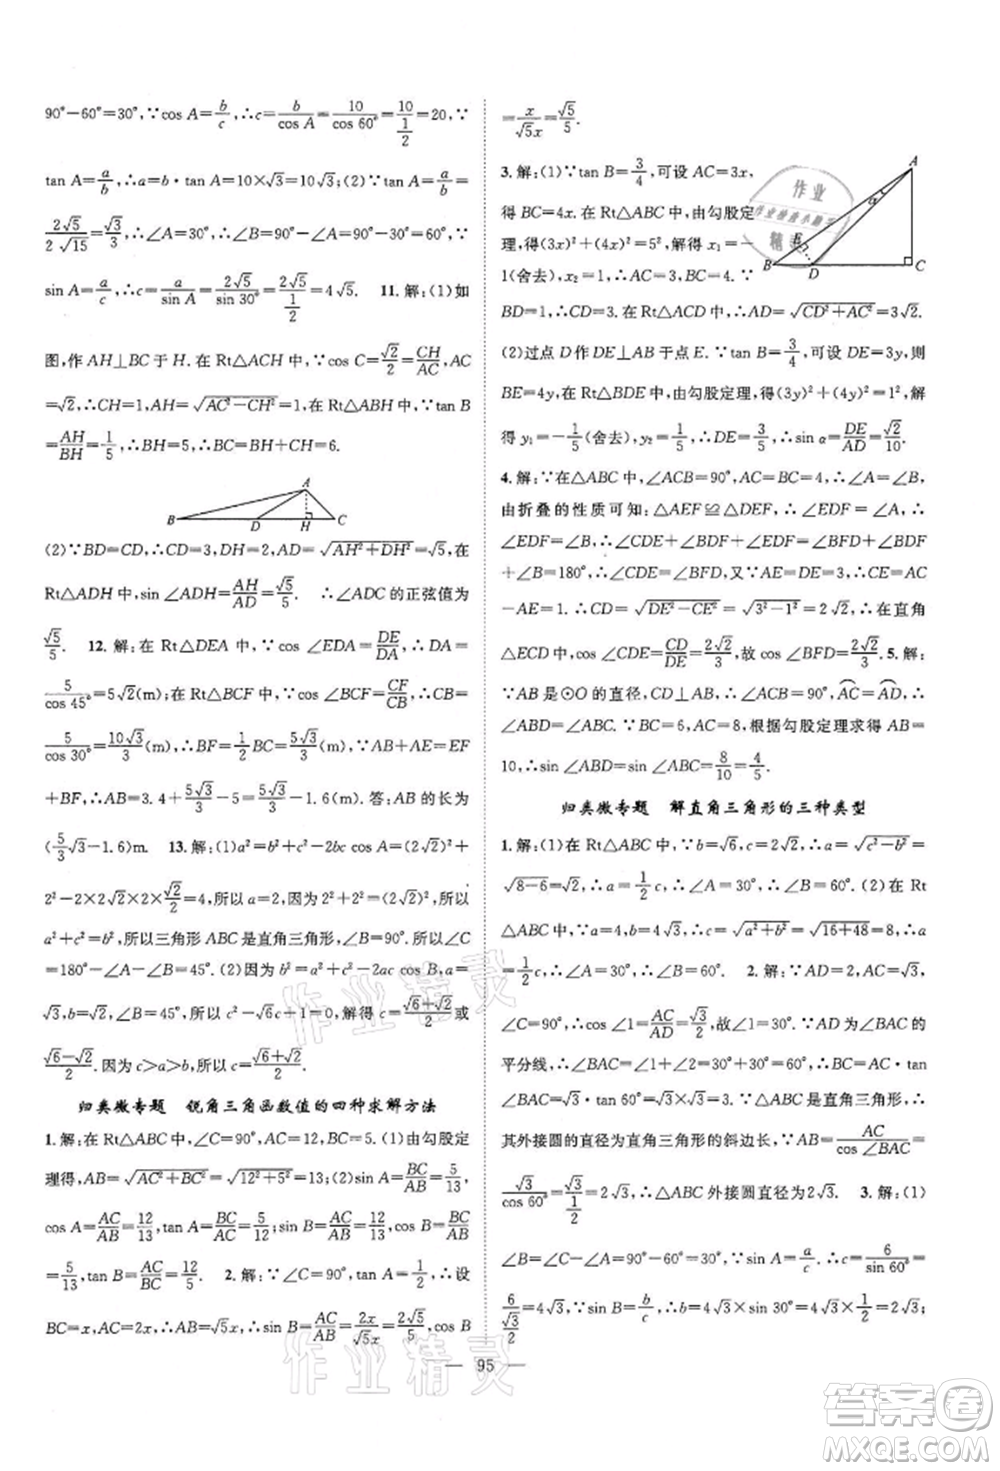 90°-60°=30°,∵cos A=b/c,∴c=b/cos A=10/cos 60°=10/(1/2)=20,∵
tan A=a/b,∴a=b·tan A=10×√3=10√3;(2)∵tan A=a/b=
2√5/2√15=√3/3,∴∠A=30°,∴∠B=90°-∠A=60°,∵
sin A=a/c,∴c=a/sin A=2√5/sin 30°=2√5/(1/2)=4√5. 11.解:(1)如
图,作 AH⊥BC 于 H. 在 Rt△ACH 中,∵cos C=√2/2=CH/AC,AC
=√2,∴CH=1,AH=√(AC²-CH²)=1,在 Rt△ABH 中,∵tan B
=AH/BH=1/5,∴BH=5,∴BC=BH+CH=6.
A
B D H C
(2)∵BD=CD,∴CD=3,DH=2,AD=√(AH²+DH²)=√5,在
Rt△ADH 中,sin ∠ADH=AH/AD=√5/5. ∴∠ADC 的正弦值为
√5/5. 12.解:在 Rt△DEA 中,∵cos ∠EDA=DE/DA,∴DA=
5/cos 45°=5√2(m);在 Rt△BCF 中,∵cos ∠BCF=CF/CB,∴CB=
5/cos 30°=10√3/3(m),∴BF=1/2BC=5√3/3(m),∵AB+AE=EF
+BF,∴AB=3.4+5√3/3-5=5√3/3-1.6(m). 答:AB 的长为
(5/3√3-1.6)m. 13.解:(1)a²=b²+c²-2bc cos A=(2√2)²+
2²-2×2√2×2×√2/2=4,所以 a=2,因为 2²+2²=(2√2)²,即
a²+c²=b²,所以三角形 ABC 是直角三角形,∠B=90°. 所以∠C
=180°-∠A-∠B=45°. (2)因为 b²=a²+c²-2ac cos B,a=
√3,b=√2,∠B=45°,所以 c²-√6c+1=0,解得 c=(√6+√2)/2 或
(√6-√2)/2. 因为 c>a>b,所以 c=(√6+√2)/2.
归类微专题 锐角三角函数值的四种求解方法
1.解:在 Rt△ABC 中,∠C=90°,AC=12,BC=5. (1)由勾股定
理得,AB=√(AC²+BC²)=√(12²+5²)=13;(2)sin A=BC/AB=5/13,
cos A=AC/AB=12/13,tan A=BC/AC=5/12;sin B=AC/AB=12/13,cos B=BC/AB
=5/13,tan B=AC/BC=12/5. 2.解:∵∠C=90°,tan A=1/2,∴设
BC=x,AC=2x,∴AB=√5x,∴sin B=AC/AB=2x/√5x=2√5/5,cos B
=x/√5x=√5/5.
3.解:(1)∵tan B=3/4,可设 AC=3x,
得 BC=4x. 在 Rt△ABC 中,由勾股定
理,得(3x)²+(4x)²=5²,解得 x₁=-
1(舍去),x₂=1,∴AC=3,BC=4. ∵
A
α
E
B D C
BD=1,∴CD=3. 在 Rt△ACD 中,∴AD=√(CD²+AC²)=3√2.
(2)过点 D 作 DE⊥AB 于点 E. ∵tan B=3/4,可设 DE=3y,则
BE=4y,在 Rt△BDE 中,由勾股定理,得(3y)²+(4y)²=1²,解
得 y₁=-1/5(舍去),y₂=1/5,∴DE=3/5,∴sin α=DE/AD=√2/10.
4.解:∵在△ABC 中,∠ACB=90°,AC=BC=4,∴∠A=∠B,
由折叠的性质可知:△AEF≌△DEF,∴∠EDF=∠A,∴
∠EDF=∠B,∵∠CDE+∠EDF+∠BFD=∠BFD+∠BDF
+∠B=180°,∴∠CDE=∠BFD,又∵AE=DE=3,∴CE=AC
-AE=1. ∴CD=√(DE²-CE²)=√(3²-1²)=2√2,∴在直角
△ECD 中,cos ∠CDE=CD/DE=2√2/3,故 cos ∠BFD=2√2/3. 5.解:
∵AB 是⊙O 的直径,CD⊥AB,∴∠ACB=90°,AC=AD,∴
∠ABD=∠ABC. ∵BC=6,AC=8,根据勾股定理求得 AB=
10,∴sin ∠ABD=sin ∠ABC=8/10=4/5.
归类微专题 解直角三角形的三种类型
1.解:(1)在 Rt△ABC 中,∵b=√6,c=2√2,∴a=√(c²-b²)=
√(8-6)=√2,∴a=1/2c,∴∠A=30°,∴∠B=60°. (2)在 Rt
△ABC 中,∵a=4,b=4√3,∴c=√(a²+b²)=√(16+48)=8,∴a=
1/2c,∴∠A=30°,∴∠B=60°. 2.解:∵AC=√3,AD=2,
∠C=90°,∴cos ∠1=AC/AD=√3/2,故∠1=30°. ∵AD 为∠BAC 的
平分线,∴∠BAC=2∠1=2×30°=60°,∴BC=AC·tan
∠BAC=√3×tan 60°=√3×√3=3. ∵△ABC 为直角三角形,∴
其外接圆的直径为直角三角形的斜边长,∵AB=AC/cos ∠BAC=
√3/cos 60°=√3/(1/2)=2√3,∴△ABC 外接圆直径为2√3. 3.解:(1)
∠B=∠C-∠A=90°-60°=30°,∵sin A=a/c,∴c=6/sin 60°=
6/(√3/2)=4√3,∵sin B=b/c,∴b=c·sin B=4√3×1/2=2√3;
95
作业精灵
作业精灵
作业
作业检查小助手
精灵
答案卷
MXQE.COM